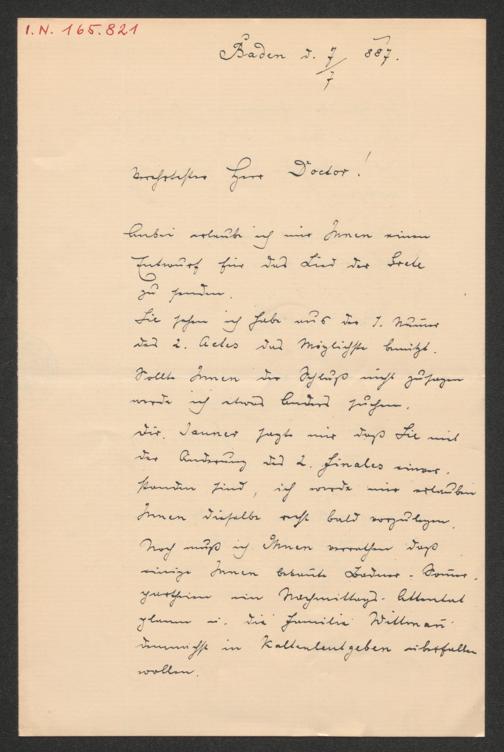 I.N. 165.821
Baden d. 7/7 887.
Verehrtester Herr Doctor!
Anbei erlaube ich mir Ihnen einen
Entwurf für das Lied der Grete
zu senden.
Sie sehen ich habe aus der 1. Numer
des 2. Actes das Möglichste benützt.
Sollte Ihnen der Schluß nicht zusagen
werde ich etwas Anders suchen.
Dir. Jauner sagte mir daß Sie mit
der Änderung des 2. Finales einver-
standen sind, ich werde mir erlauben
Ihnen dieselbe recht bald vorzulegen.
Noch muß ich Ihnen verrathen daß
einige Ihnen bekannte Badner-Somer-
partheien ein Nachmittags-Attentat
planen u. die Familie Wittmañ
demnächst in Kaltenleutgeben überfallen
wollen.